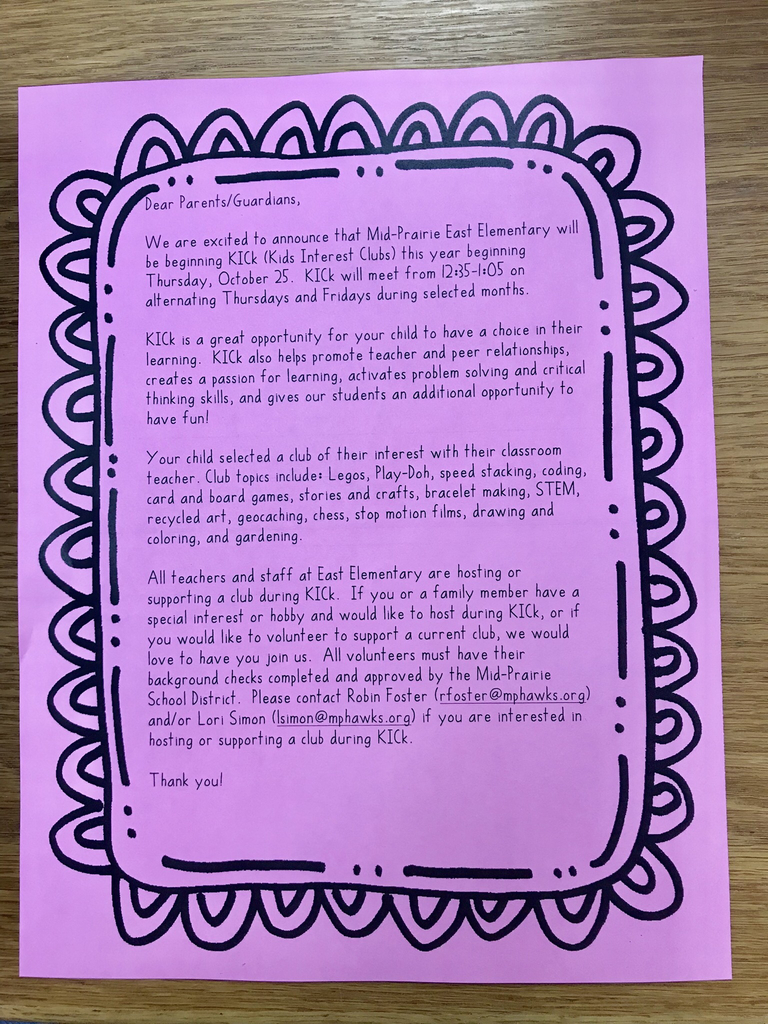 Dear Parents/Guardians,
We are excited to announce that Mid-Prairie East Elementary will
be beginning KICk (Kids Interest Clubs) this year beginning
Thursday, October 25. KICk will meet from 12:35-1:05 on
alternating Thursdays and Fridays during selected months.
KICk is a great opportunity for your child to have a choice in their
learning. KICk also helps promote teacher and peer relationships,
creates a passion for learning, activates problem solving and critical
thinking skills, and gives our students an additional opportunity to
have fun!
Your child selected a club of their interest with their classroom
teacher. Club topics include: Legos, Play-Doh, speed stacking, coding,
card and board games, stories and crafts, bracelet making, STEM,
recycled art, geocaching, chess, stop motion films, drawing and
coloring, and gardening.
All teachers and staff at East Elementary are hosting or
supporting a club during KICk. If you or a family member have a
special interest or hobby and would like to host during KICk, or if
you would like to volunteer to support a current club, we would
love to have you join us. All volunteers must have their
background checks completed and approved by the Mid-Prairie
School District. Please contact Robin Foster (rfoster@mphawks.org)
and/or Lori Simon (lsimon@mphawks.org) if you are interested in
hosting or supporting a club during KICk.
Thank you!